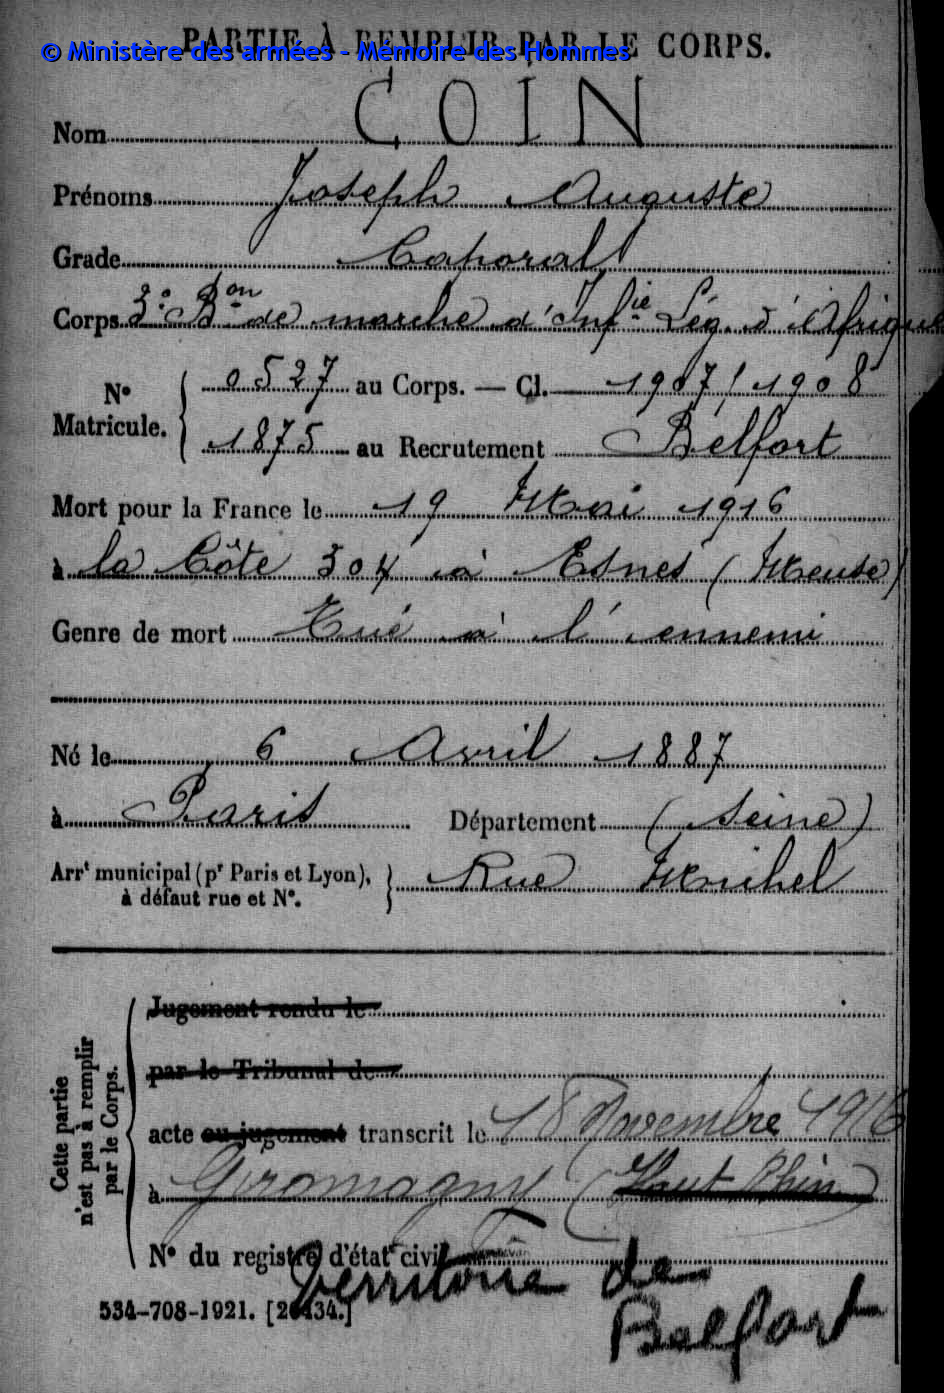 PARTIE À REMPLIR PAR LE CORPS.
© Ministère des armées - Mémoire des Hommes
Nom COIN
Prénoms Joseph Auguste
Grade Caporal
Corps 3e Bon de marche d'Infie Lég. d'Afrique
No Matricule. { 0527 au Corps. — Cl. 1907/1908
1875 au Recrutement Belfort
Mort pour la France le 19 Mai 1916
à la Côte 304 à Esnes (Meuse)
Genre de mort Tué à l'ennemi
Né le 6 Avril 1887
à Paris Département (Seine)
Arrt municipal (pr Paris et Lyon), à défaut rue et No. } Rue Michel
Cette partie n'est pas à remplir par le Corps.
Jugement rendu le
par le Tribunal de
acte ou jugement transcrit le 18 Novembre 1916
à Giromagny (Haut Rhin)
No du registre d'état civil
Territoire de
Belfort
534-708-1921. [26434.]